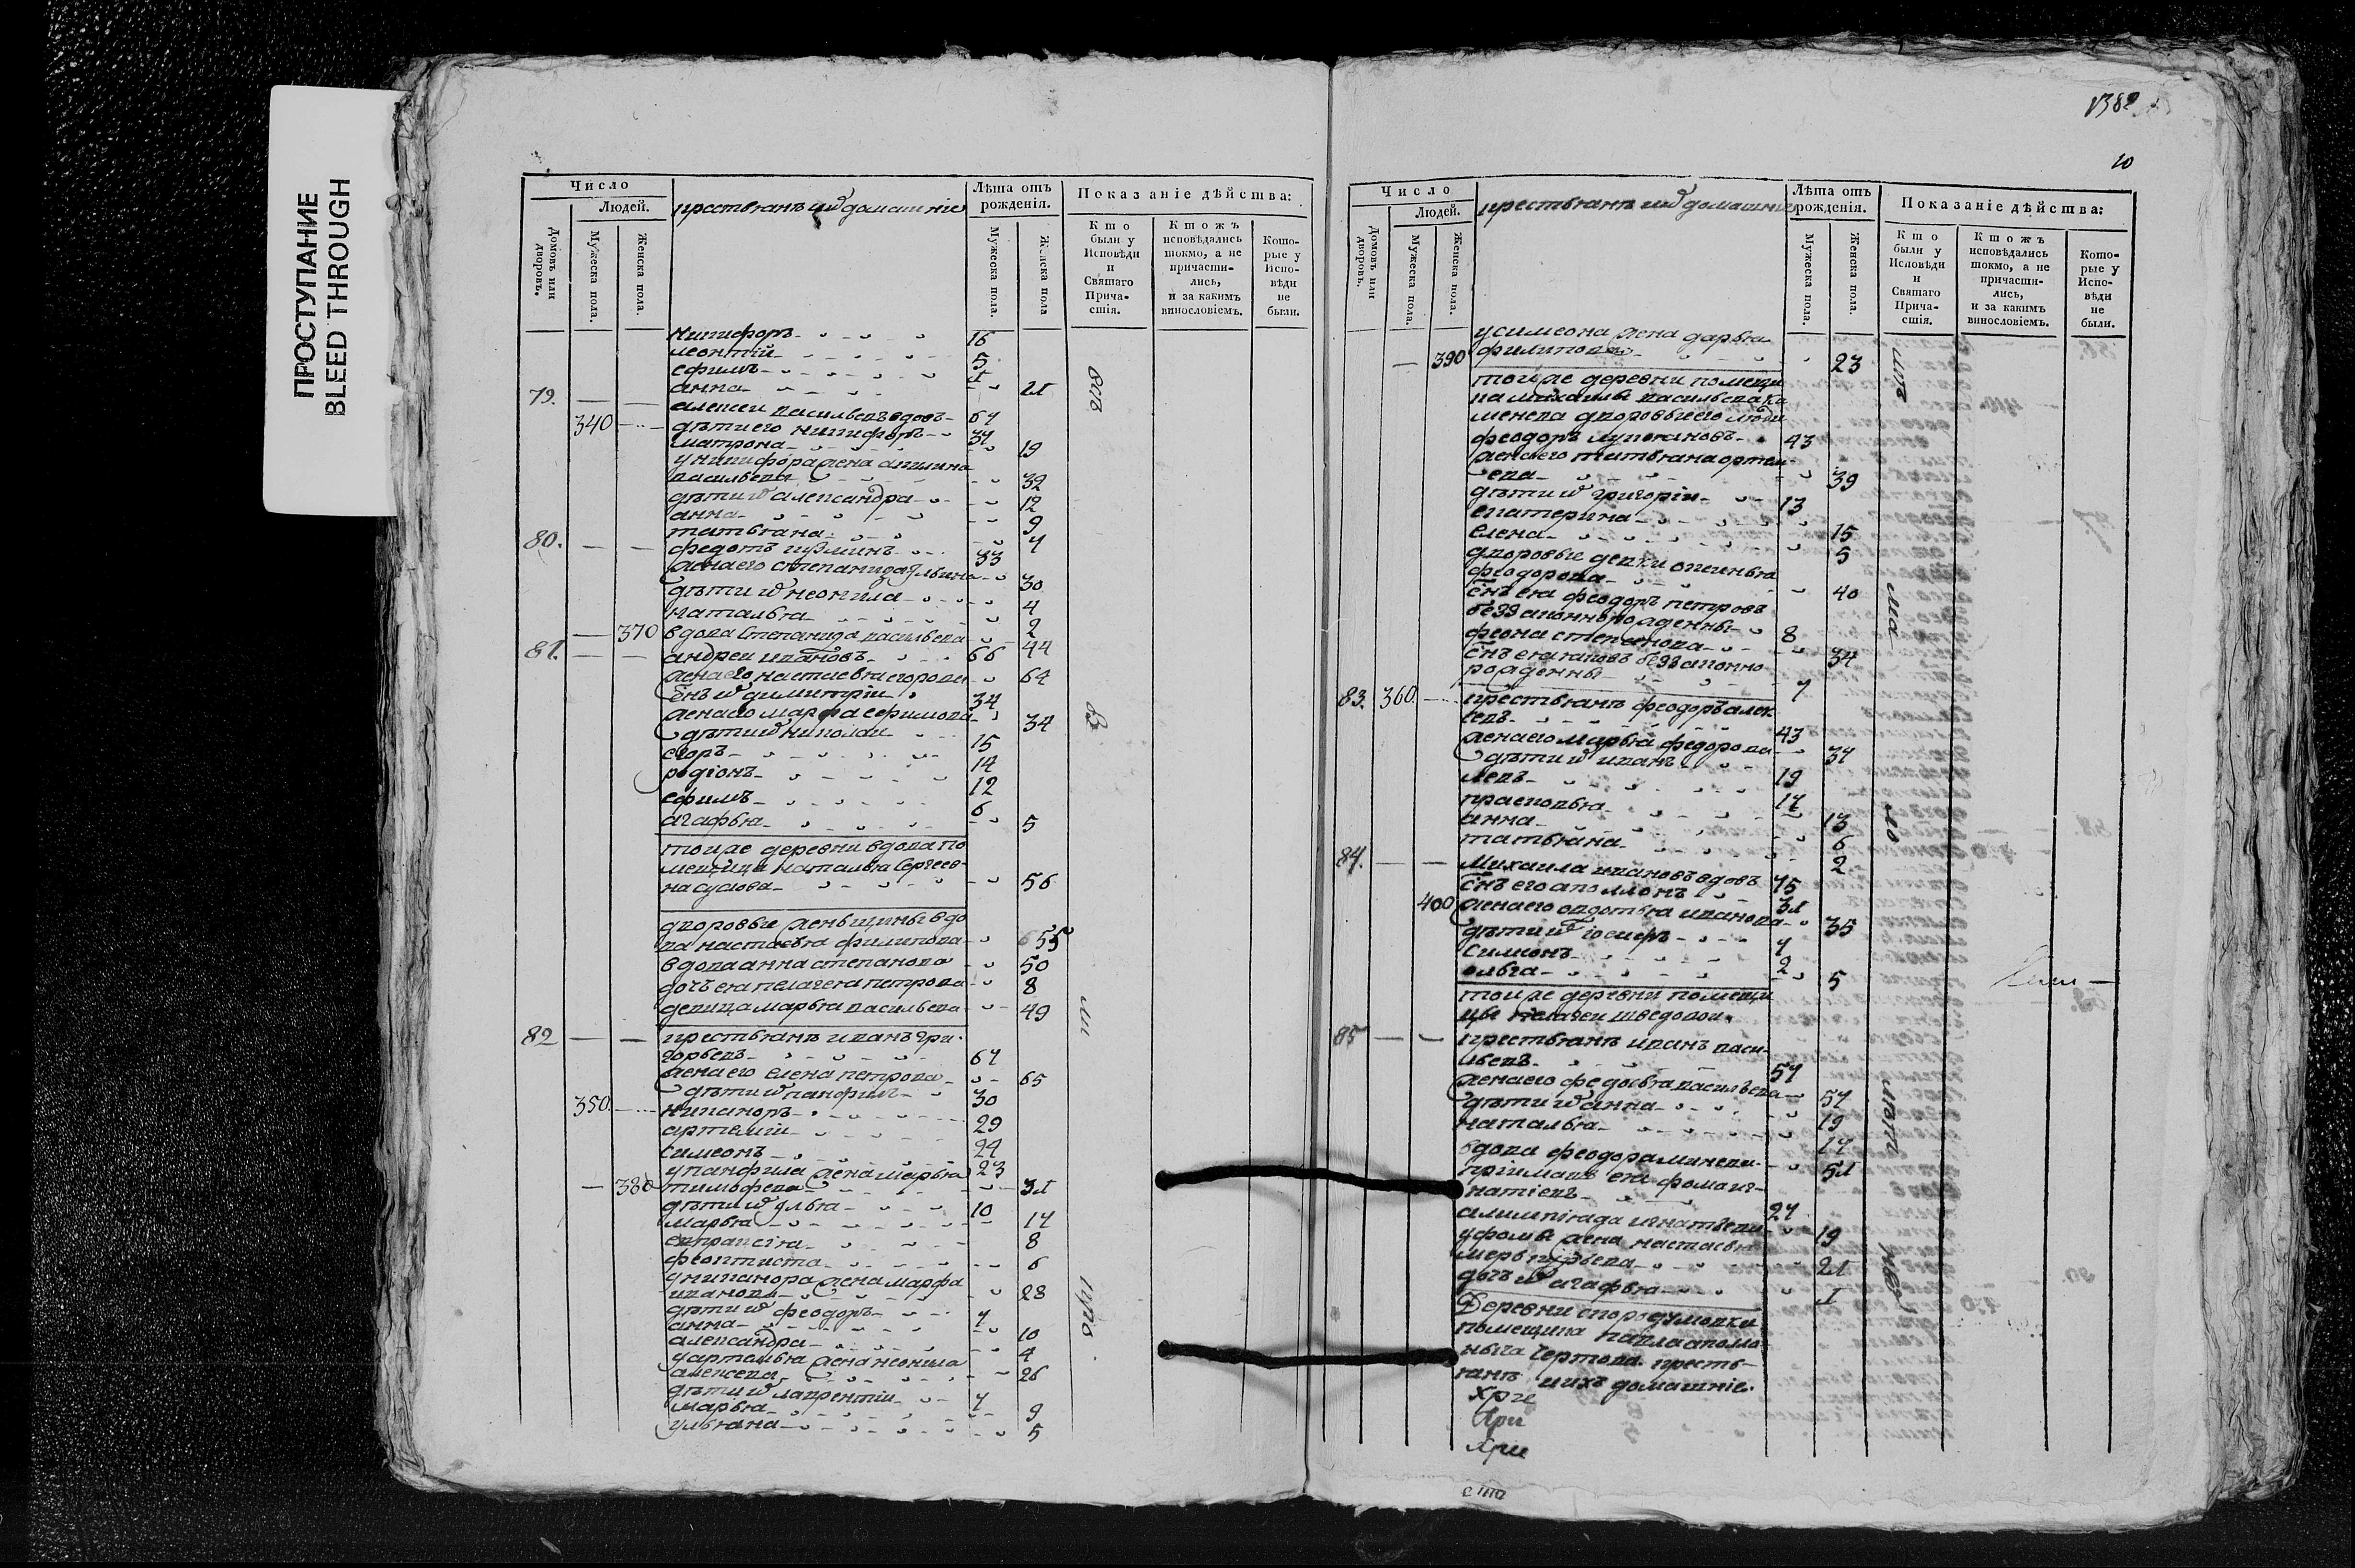 ПРОСТУПАНИЕ
BLEED THROUGH
Число
Людей.
Домовъ или дворовъ.
Мужеска пола.
Женска пола.
крестьянъ и ихъ домашніе
Лѣта отъ рожденія.
Мужеска пола.
Женска пола
Показаніе дѣйства:
Кто были у Исповѣди и Святаго Причастія.
Ктожъ исповѣдались токмо, а не причастились, и за какимъ винословіемъ.
Которые у Исповѣди не были.
никифоръ 16
леонтій 5
ефимъ 1
анна 21
79. алексеи васильевъ вдовъ 67
340 дѣти его никифоръ 37
матрона 19
у никифора жена акилина
васильева 32
дѣти их александра 12
анна 9
татьяна 7
80. федотъ кузминъ 33
жена его степанида ильина 30
дѣти их неонила 4
наталья 2
370 вдова степанида васильева 44
81. андреи ивановъ 66
жена его настасья егорова 64
снъ их димитріи 34
жена его марфа ефимова 34
дѣти их николаи 15
егоръ 14
родіонъ 12
ефимъ 6
агафья 5
тоиже деревни вдова по
мещица наталья сергеев
на сукова 56
дворовые женьщины вдо
ва настасья филипова 55
вдова анна степанова 50
дочь ея пелагея петрова 8
девица марья васильева 49
82 крестьянъ иванъ гри
горьевъ 67
жена его елена петрова 65
дѣти их панфилъ 30
350. никаноръ 29
артемии 24
симеонъ 23
у панфила жена марья
380 тимофева 31
дѣти их илья 10
марья 17
евпраксія 8
феоктиста 6
у никанора жена марфа
иванова 28
дѣти их феодоръ 7
анна 10
александра 4
у артемья жена неонила
алексева 26
дѣти их лаврентіи 7
марья 9
ульяна 5
1382
10
Число
Людей.
Домовъ или дворовъ.
Мужеска пола.
Женска пола.
крестьянъ и ихъ домашніе
Лѣта отъ рожденія.
Мужеска пола.
Женска пола.
Показаніе дѣйства:
Кто были у Исповѣди и Святаго Причастія.
Ктожъ исповѣдались токмо, а не причастились, и за какимъ винословіемъ.
Которые у Исповѣди не были.
у симеона жена дарья
390 филипова 23
тоиже деревни помещи
ка михаилы васильева ка
менева дворовые его люди
феодоръ лукьяновъ 43
жена его татьяна артем
ева 39
дѣти их григоріи 13
екатерина 15
елена 5
дворовые девки аксинья
феодорова 40
снъ ея феодоръ петровъ
беззаконнорожденны 8
феона степанова 34
снъ ея яковъ беззаконно
рожденны 7
83. 360. крестьянъ феодоръ алек
севъ 43
жена его марья федорова 37
дѣти их иванъ 19
левъ 17
прасковья 13
анна 6
татьяна 2
84. михаила ивановъ вдовъ 75
снъ его аполлонъ 31
400 жена его авдотья иванова 35
дѣти их іосифъ 7
симеонъ 2
ольга 5
тоиже деревни помещи
цы пелагеи шведовои
85 крестьянъ иванъ васи
льевъ 57
жена его федосья васильева 57
дѣти их анна 19
наталья 17
вдова феодора минева 51
пріимашъ ея фома иг
натіевъ 27
алимпіяда игнатьева 19
у фомы жена настасья
21
дочь их агафья 1
Деревни
помещика павла аполло
ныча чертова кресть
янъ и ихъ домашніе